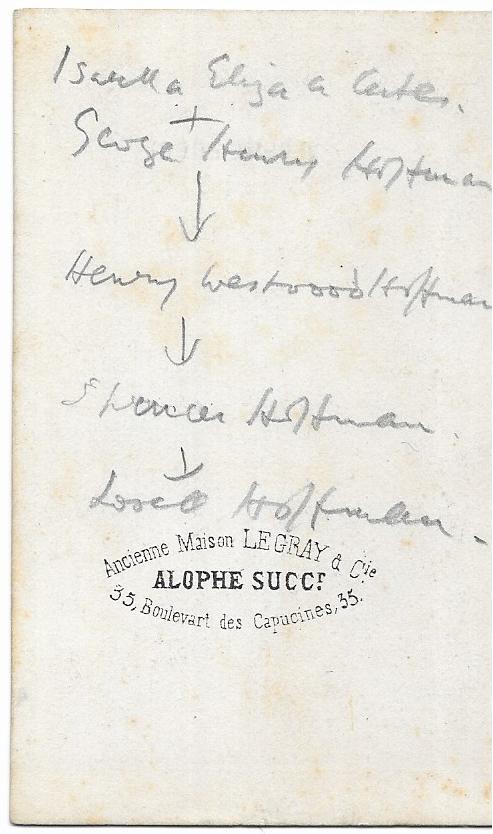 Isabella Eliza
+
George Henry Hoffman
↓
Henry Westwood Hoffman
↓
Spencer Hoffman.
↓
Hoffman.
Ancienne Maison LEGRAY & Cie
ALOPHE SUCCR.
35, Boulevart des Capucines, 35.